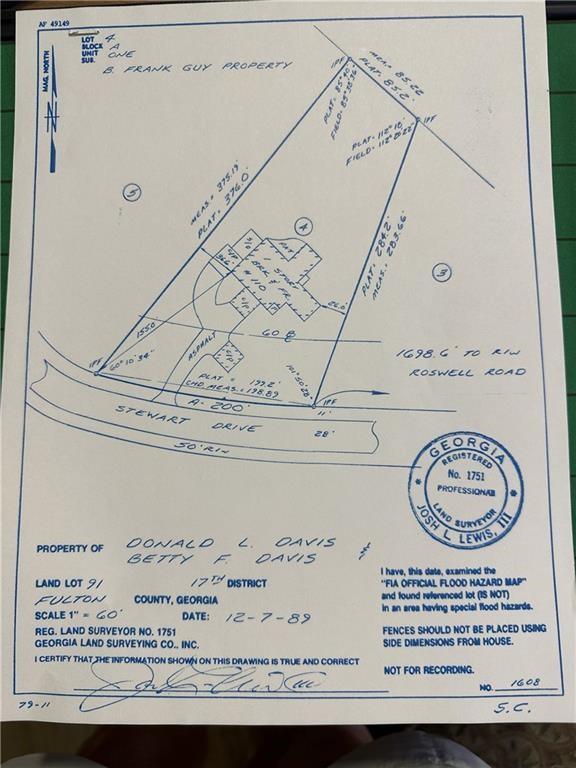 AF 49149
LOT 4
BLOCK A
UNIT ONE
SUB. B. FRANK GUY PROPERTY
MAG. NORTH
IPF
MEA.= 85.22
PLAT= 85.2'
PLAT: 85°40'
FIELD: 85°38'36"
PLAT= 112°18'
FIELD= 112°20'22"
IPF
MEAS.= 375.19'
PLAT= 376.0'
5
4
3
PLAT= 284.2'
MEAS.= 283.66'
PAT.
O/P
1 STORY
BRK & FR.
# 110
26.0'
60 B
ASPHALT
IPF
60°10'34"
PLAT = 199.2'
CHD. MEAS.= 198.89
A= 200'
IPF
11'
1698.6' TO R/W
ROSWELL ROAD
STEWART DRIVE
28'
50' R/W
GEORGIA
REGISTERED
No. 1751
PROFESSIONAL
LAND SURVEYOR
JOSH L. LEWIS, III
PROPERTY OF DONALD L. DAVIS
BETTY F. DAVIS
LAND LOT 91 17TH DISTRICT
FULTON COUNTY, GEORGIA
SCALE 1" = 60' DATE: 12-7-89
REG. LAND SURVEYOR NO. 1751
GEORGIA LAND SURVEYING CO., INC.
I CERTIFY THAT THE INFORMATION SHOWN ON THIS DRAWING IS TRUE AND CORRECT
I have, this date, examined the
"FIA OFFICIAL FLOOD HAZARD MAP"
and found referenced lot (IS NOT)
in an area having special flood hazards.
FENCES SHOULD NOT BE PLACED USING
SIDE DIMENSIONS FROM HOUSE.
NOT FOR RECORDING.
NO. 1608
79-11
S.C.